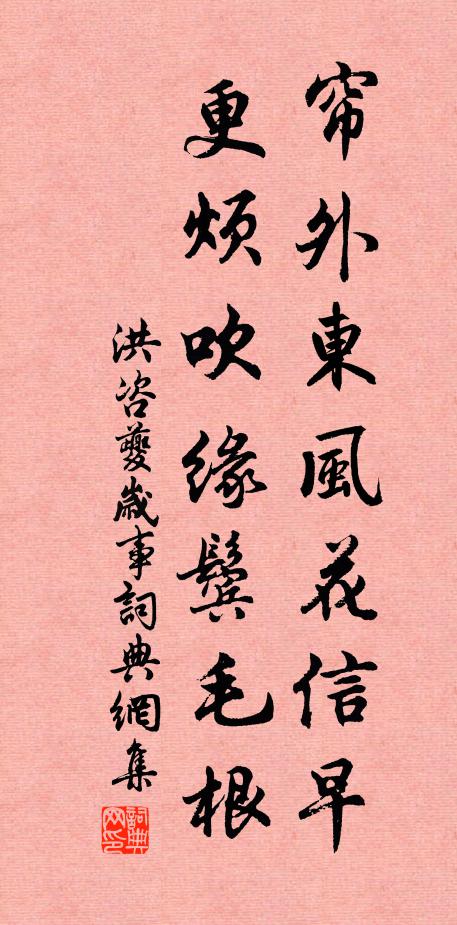 帘外東風花信早
更煩吹緣鬢毛根
洪咨夔歲事詞典網集
詞典网印